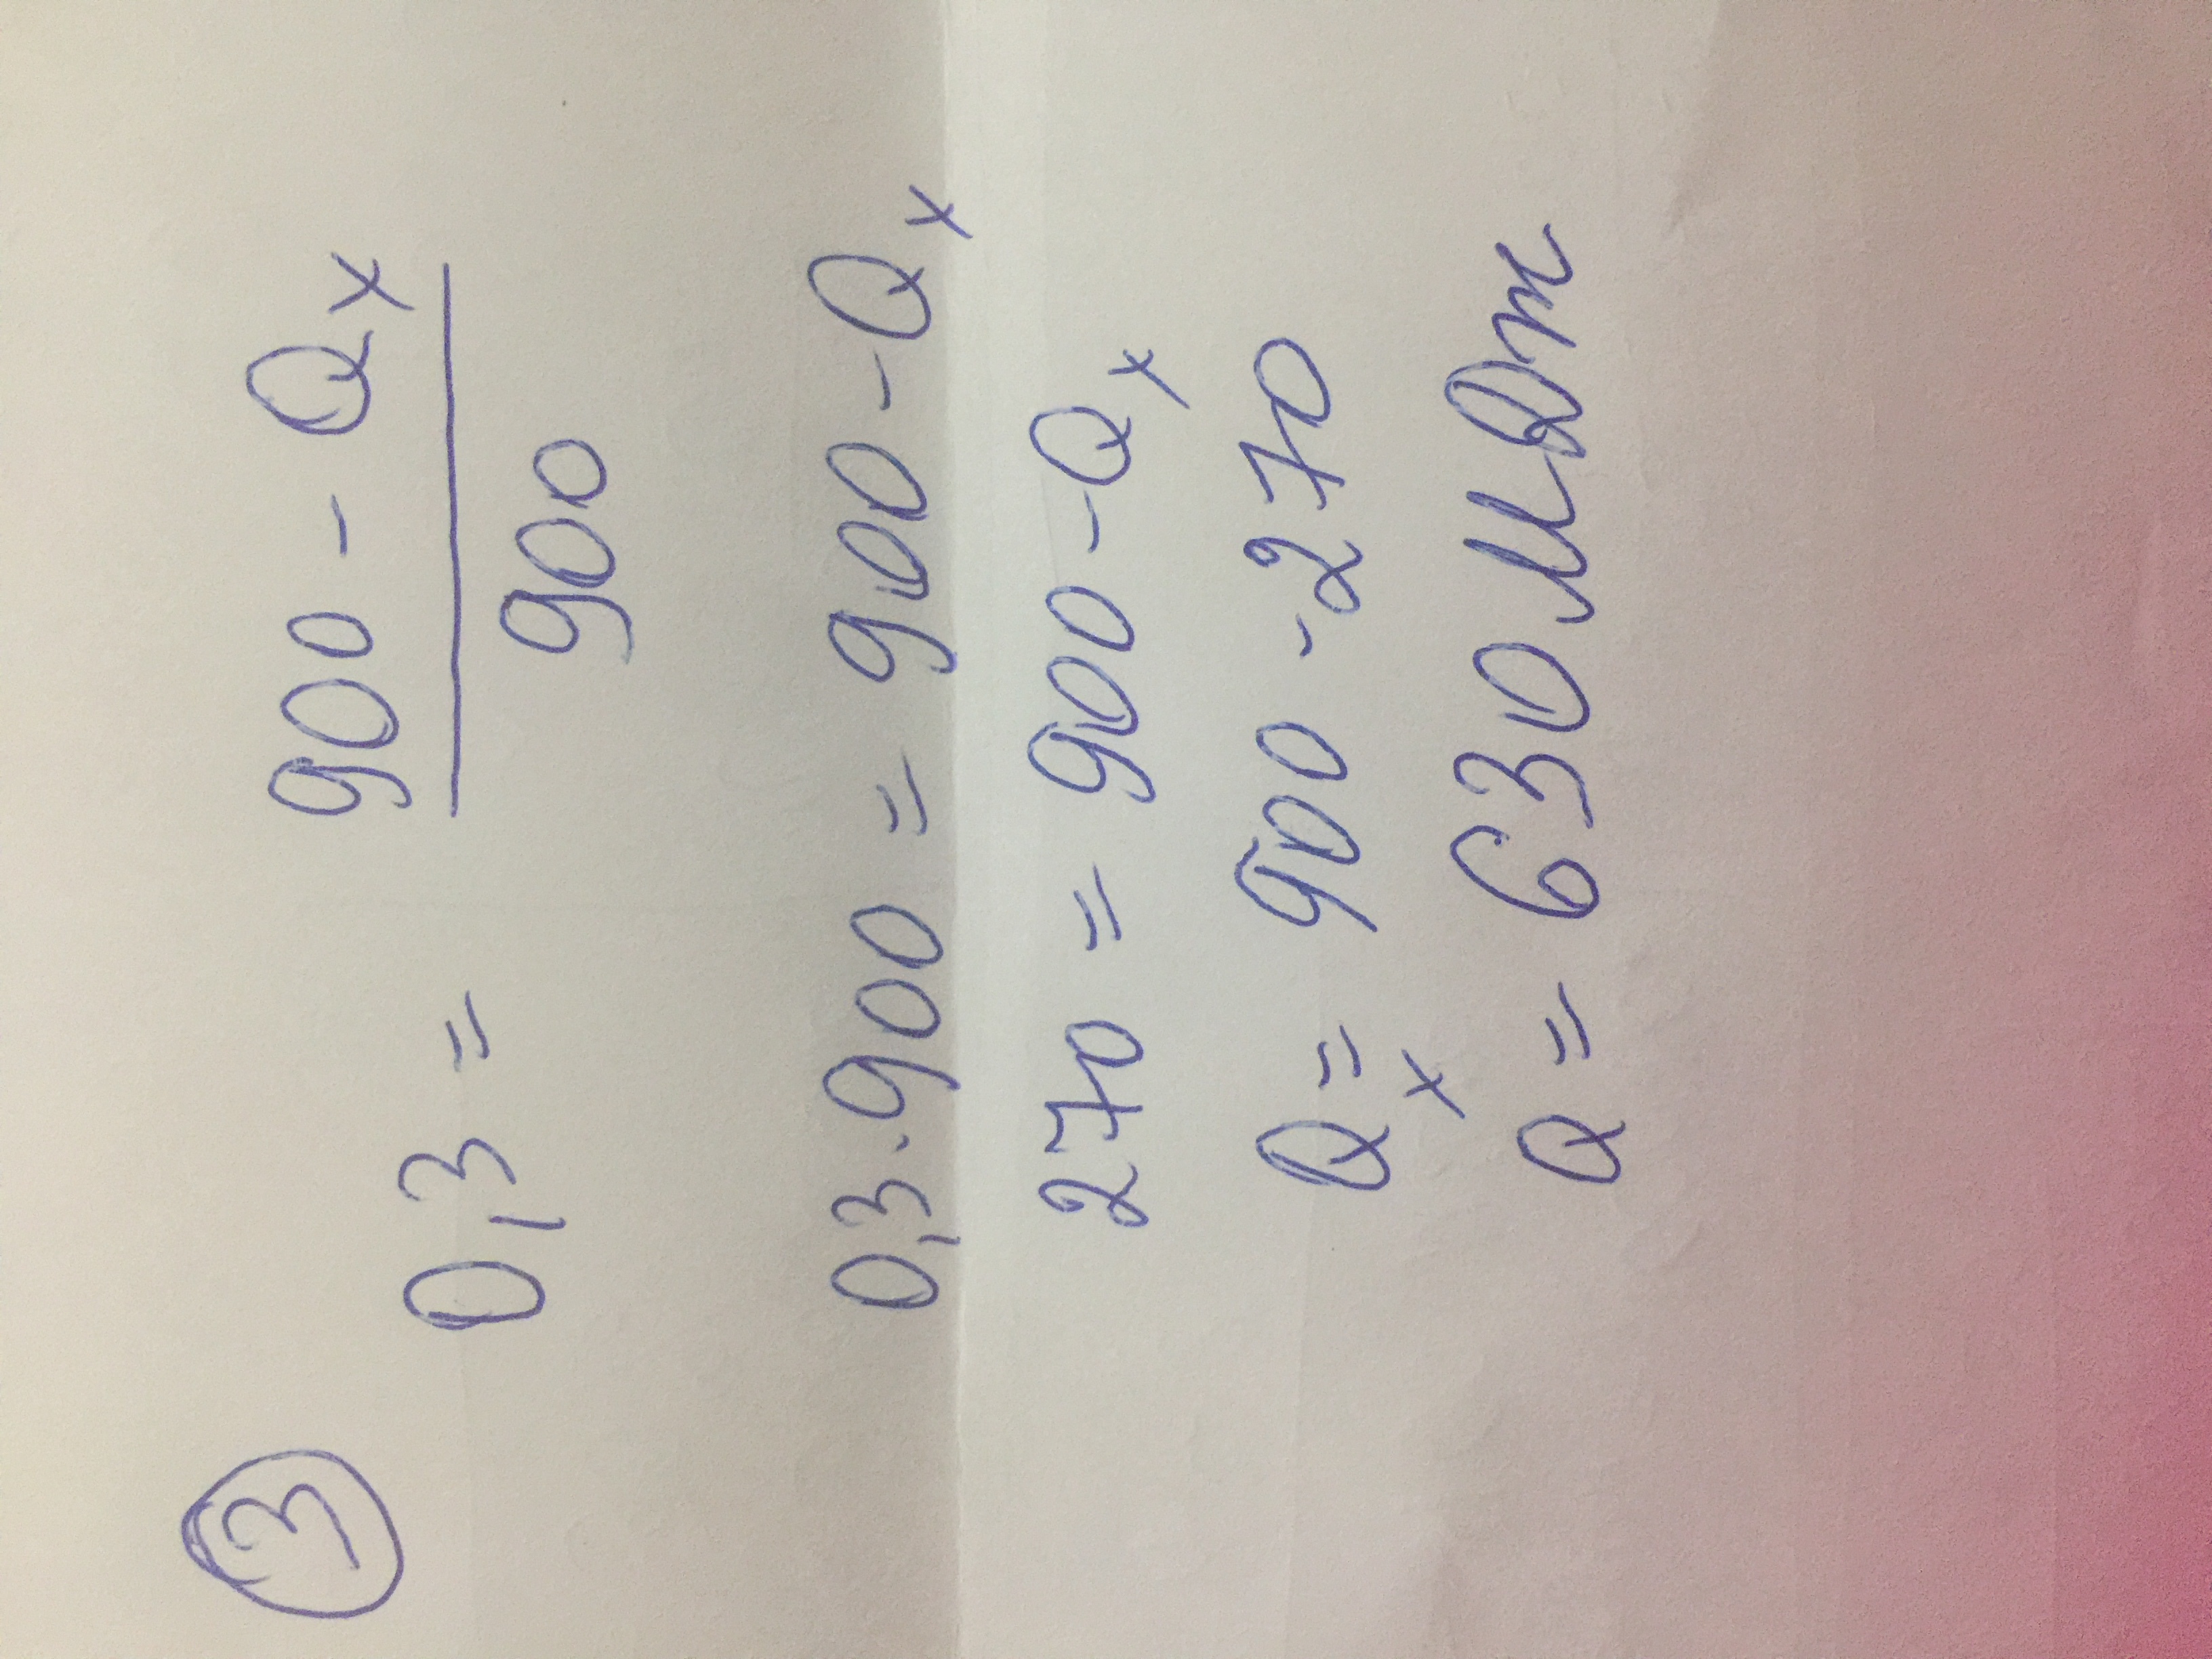 ③ 0,3 = 900 - Qx / 900
0,3·900 = 900 - Qx
270 = 900 - Qx
Qx = 900 - 270
Q = 630 МДж